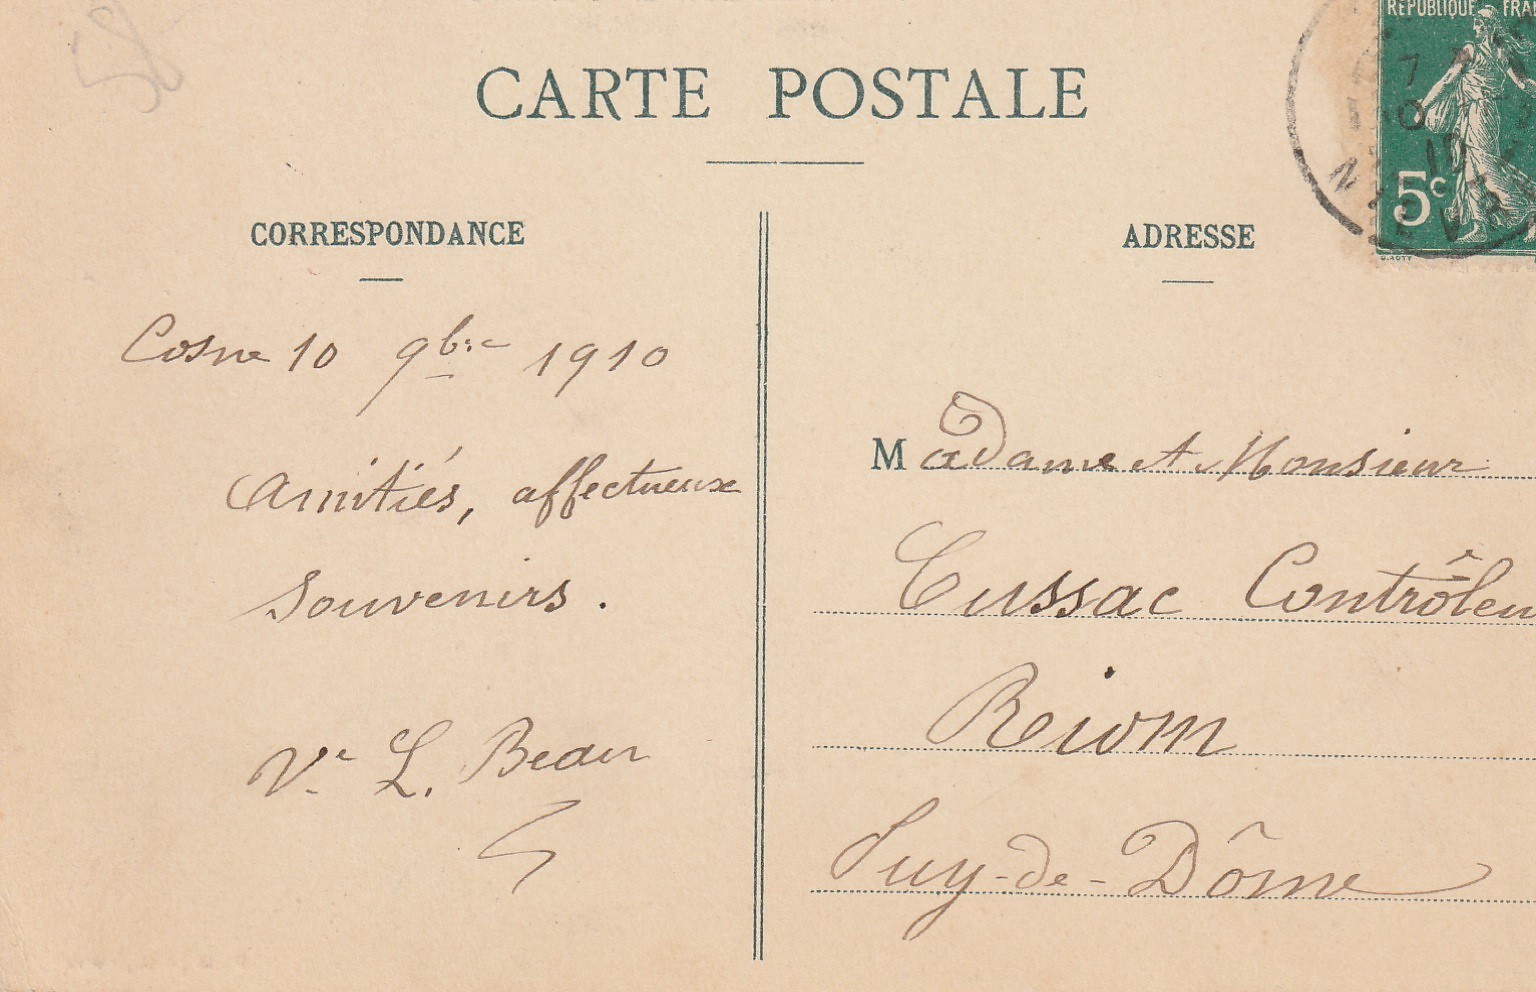 CARTE POSTALE
CORRESPONDANCE
Cosne 10 9bre 1910
Amitiés, affectueux
Souvenirs.
Ve L. Beau
ADRESSE
RÉPUBLIQUE FRA
5c
O. ROTY
7
10
10
NIÈVRE
Madame et Monsieur
Cussac Contrôleu
Reiom
Puy-de-Dôme